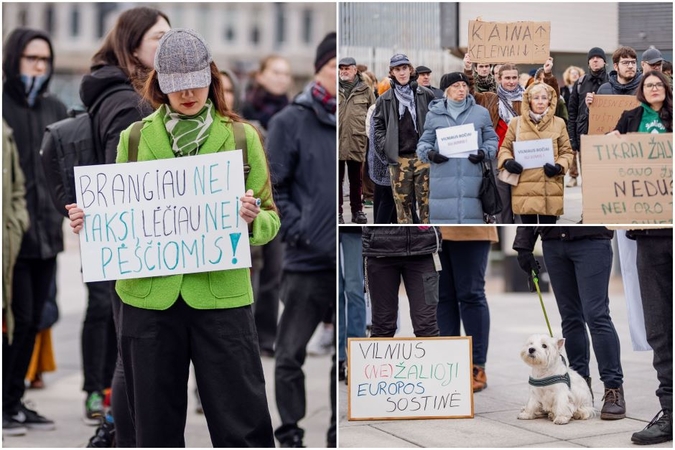 BRANGIAU NEI
TAKSI LĖČIAU NEI
PĖSČIOMIS!
KAINA ↑
KELEIVIAI ↓
TIKRAI ŽALI
NEDUS
NEI ORO
VILNIUS
(NE) ŽALIOJI
EUROPOS
SOSTINĖ